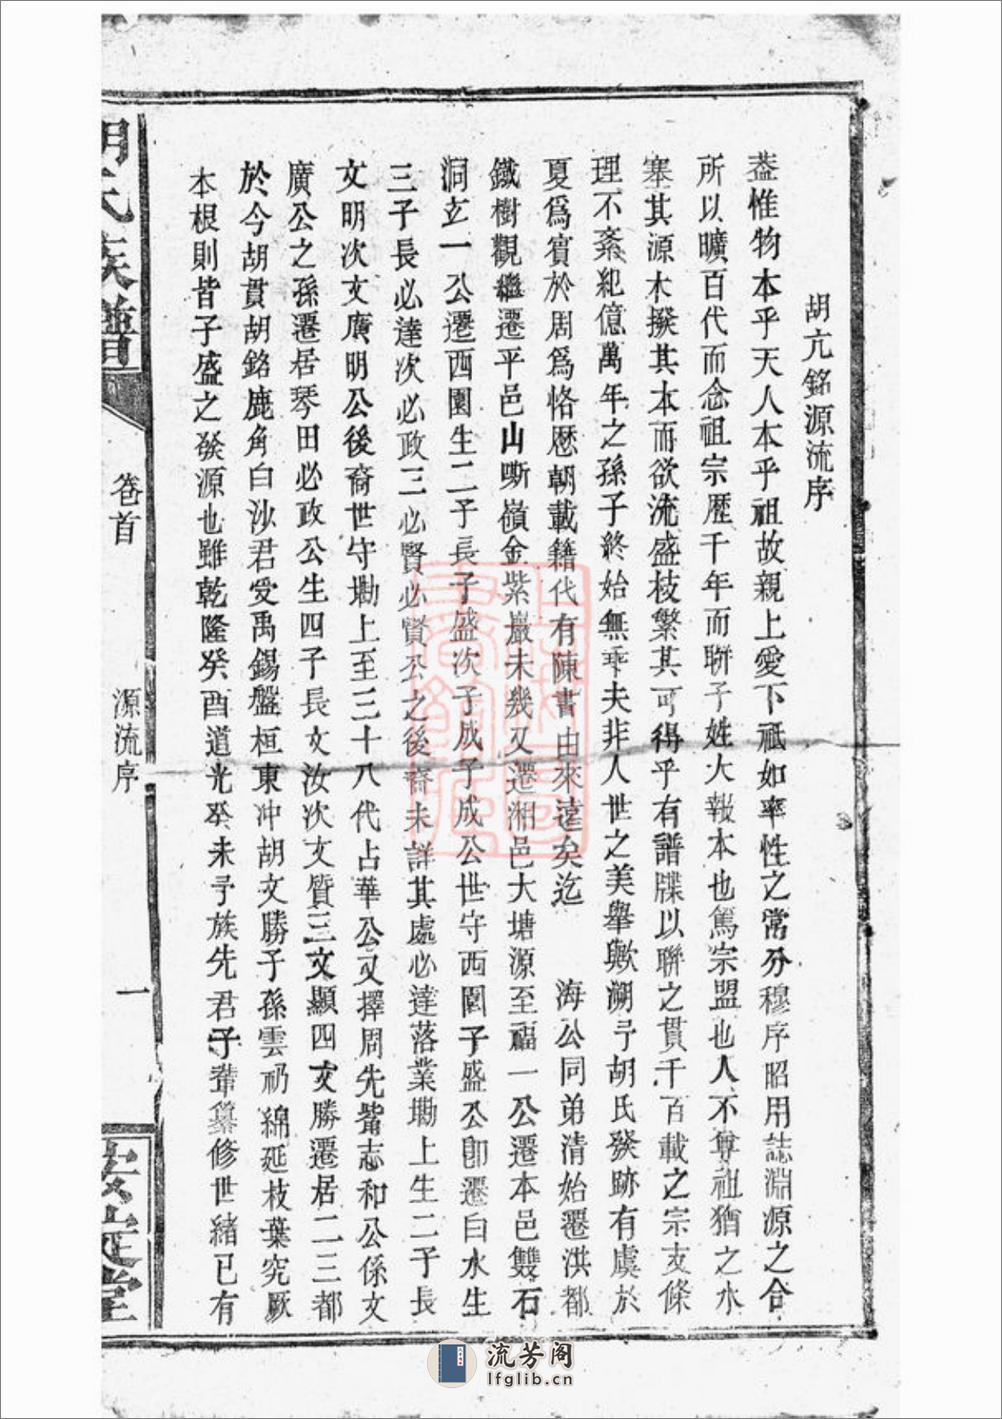 胡亢銘源流序
葢惟物本乎天人本乎祖故親上愛下祗如率性之常分穆序昭用誌淵源之合
所以曠百代而念祖宗歷千年而聯子姓大報本也篤宗盟也人不尊祖猶之水
塞其源木撥其本而欲流盛枝繁其可得乎有譜牒以聯之貫千百載之宗支條
理不紊紀億萬年之孫子終始無乖夫非人世之美舉歟溯予胡氏發跡有虞於
夏爲賓於周爲恪歷朝載籍代有陳書由來遠矣迄 海公同弟清始遷洪都
鐵樹觀繼遷平邑山嘶嶺金紫巖未幾又遷湘邑大塘源至福一公遷本邑雙石
洞立一公遷西園生二子長子盛次子成子成公世守西園子盛公卽遷白水生
三子長必達次必政三必賢必賢公之後裔未詳其處必達落業墈上生二子長
文明次文廣明公後裔世守墈上至三十八代占華公又擇周先觜志和公係文
廣公之孫遷居琴田必政公生四子長文汝次文質三文顯四文勝遷居二三都
於今胡貫胡銘鹿角白沙君受禹錫盤桓東冲胡文勝子孫雲礽綿延枝葉究厥
本根則皆子盛之發源也雖乾隆癸酉道光癸未予族先君子輩纂修世緒已有
胡氏族譜
卷首
源流序
一
安定堂
流芳阁
lfglib.cn